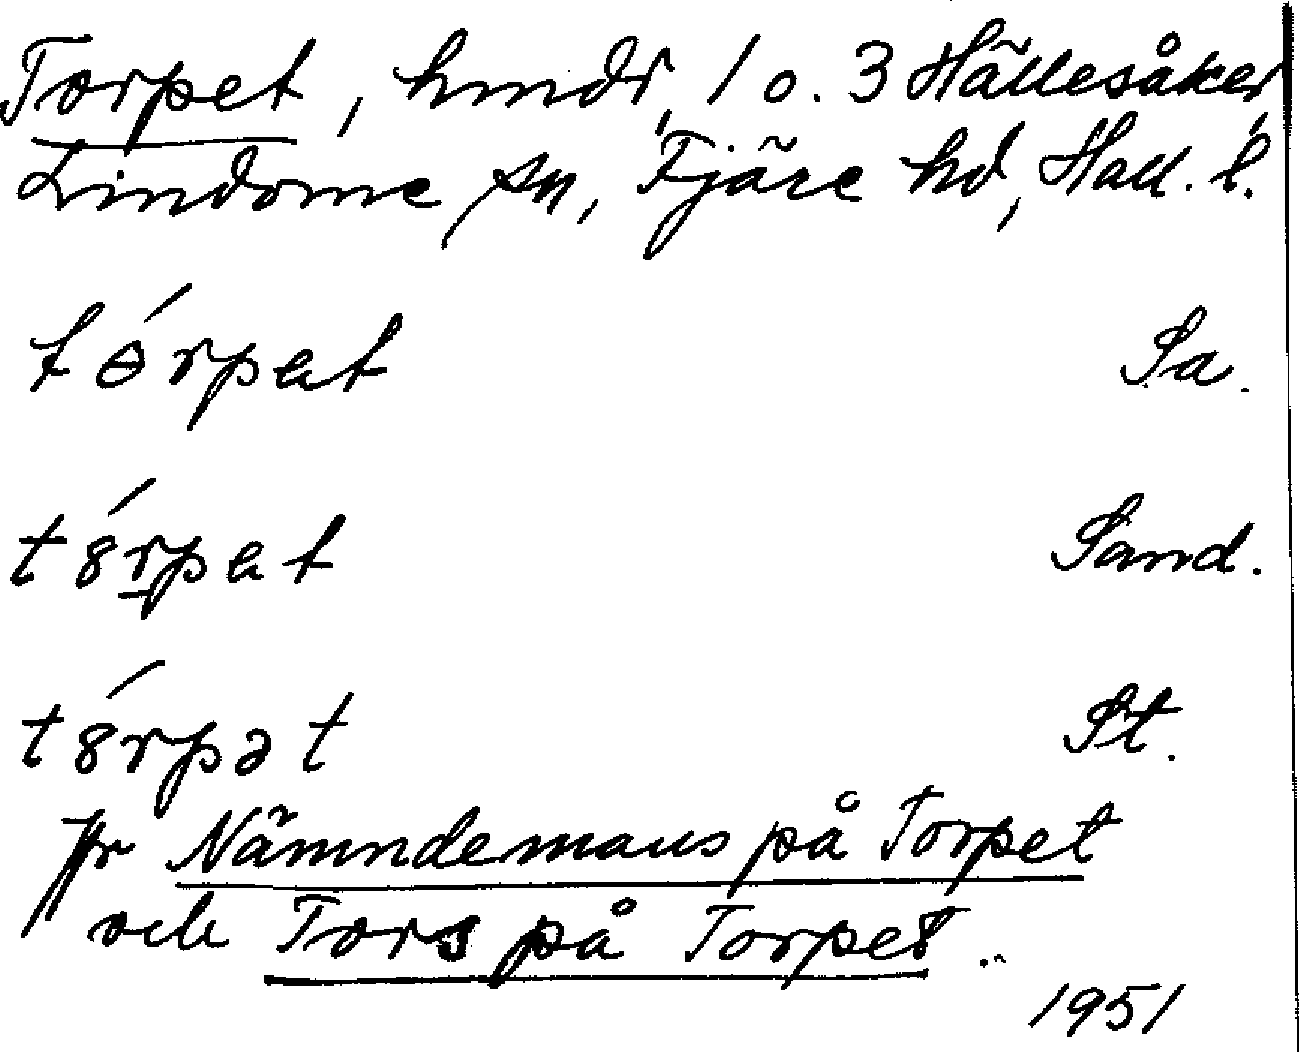 Torpet, hmdr, 1 o. 3 Hällesåker,
Lindome sn, Fjäre hd, Hall. l.
tɵ́rpet Sa.
t8́rpet Sand.
t8́rpət St.
Jfr Nämndemans på Torpet
och Tors på Torpet.
1951